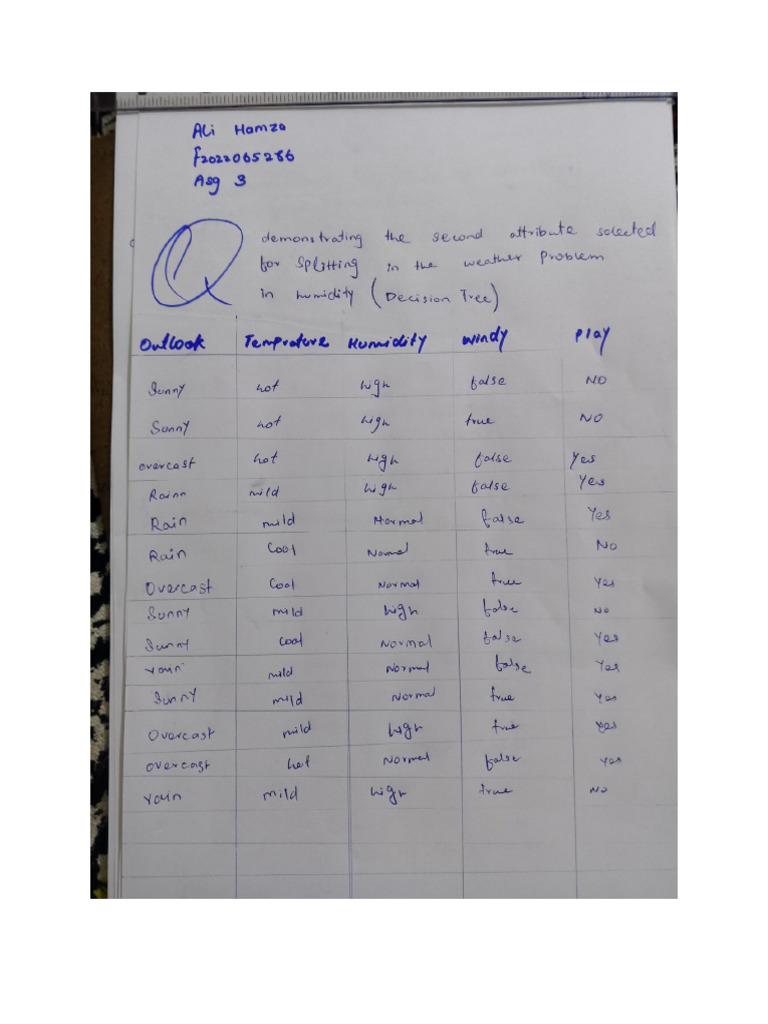 Ali Hamza
f2022065286
Asg 3
Q
demonstrating the second attribute selected
for splitting in the weather problem
in humidity (Decision Tree)
Outlook Temprature Humidity windy Play
Sunny hot high false NO
Sunny hot high true NO
overcast hot high false Yes
Rain mild high false Yes
Rain mild Normal false Yes
Rain Cool Normal true No
Overcast Cool Normal true Yes
Sunny mild high false No
Sunny cool Normal false Yes
rain mild Normal false Yes
Sunny mild Normal true Yes
Overcast mild high true Yes
overcast hot Normal false Yes
rain mild high true No